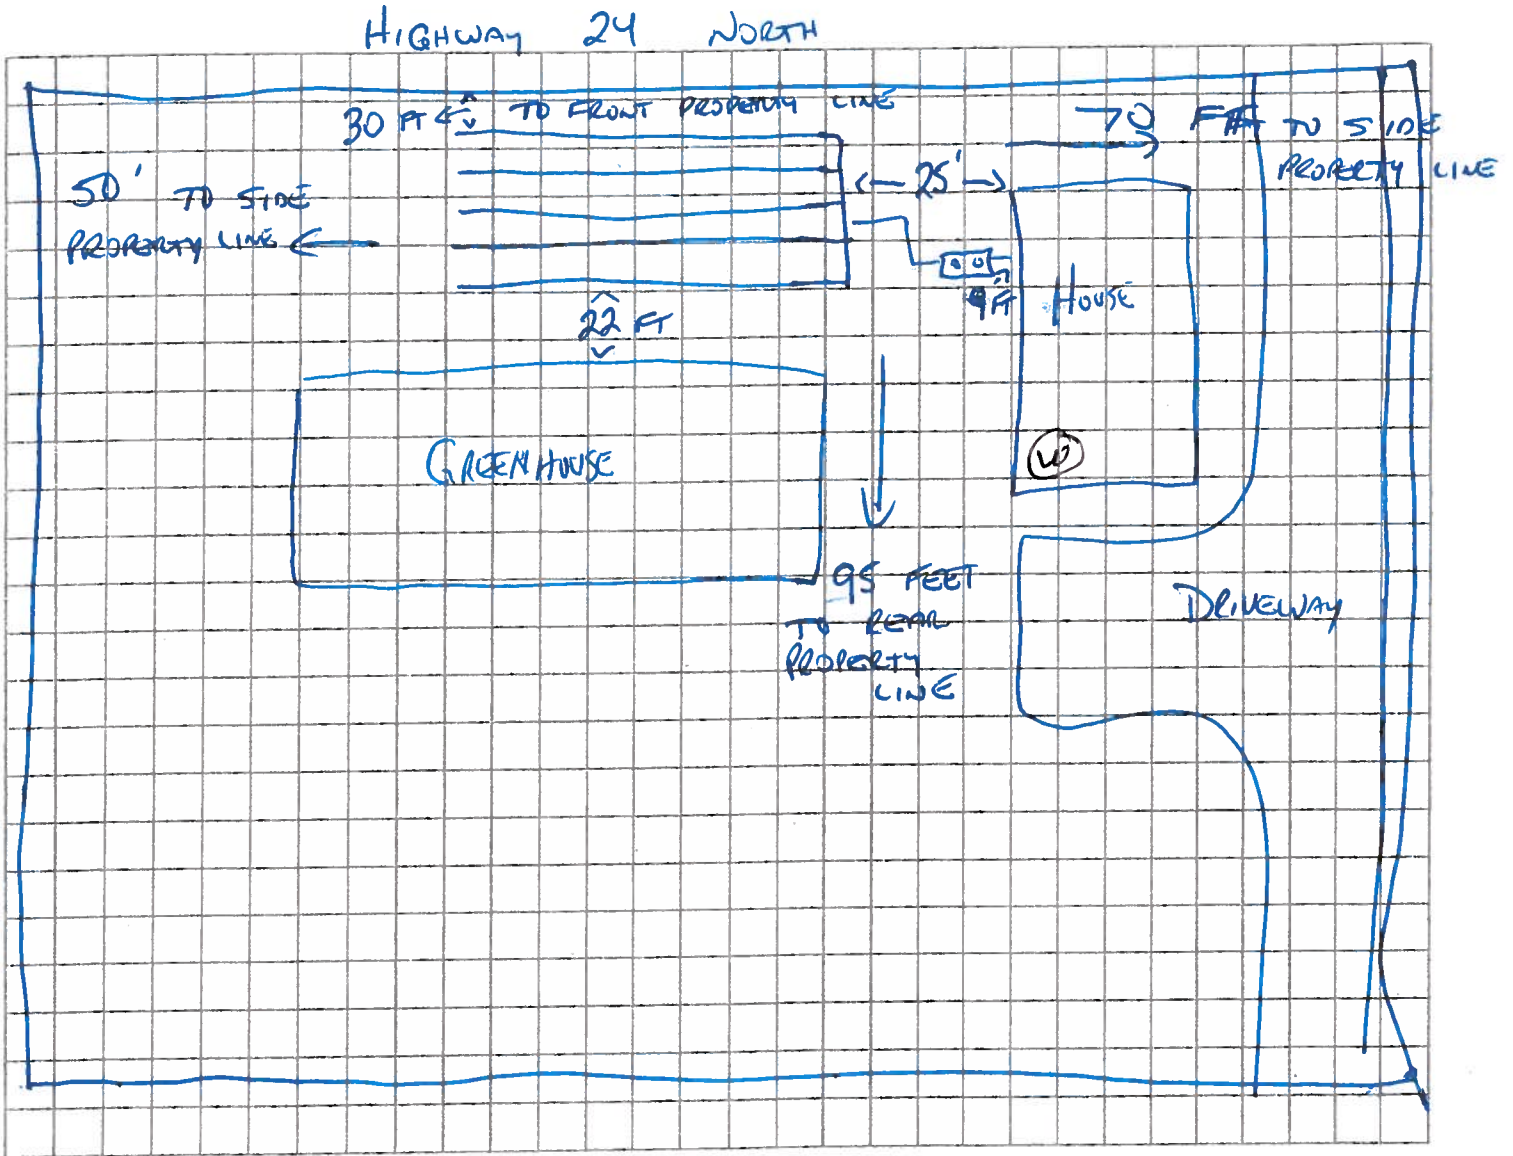 HIGHWAY 24 NORTH
30 FT TO FRONT PROPERTY LINE
70 FT TO SIDE
PROPERTY LINE
50' TO SIDE
PROPERTY LINE
25'
9 FT
HOUSE
22 FT
GREENHOUSE
W
95 FEET
TO REAR
PROPERTY
LINE
DRIVEWAY